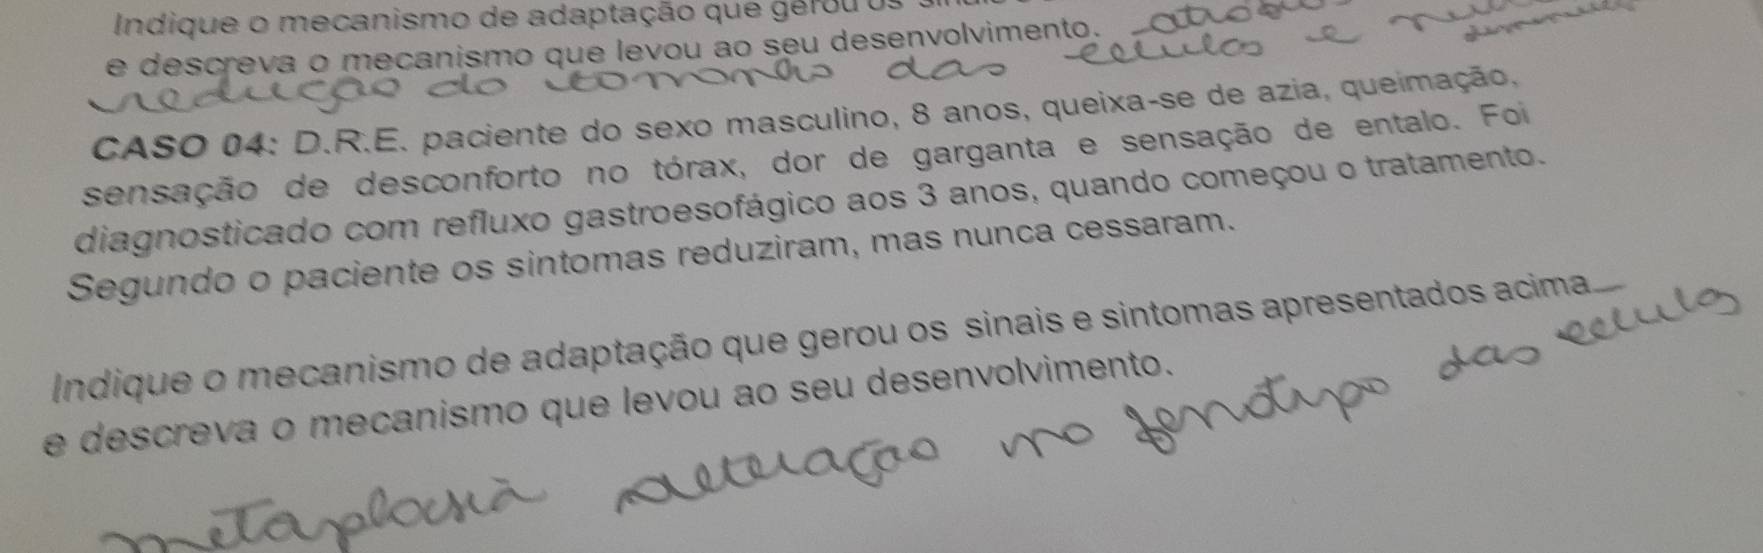 Indique o mecanismo de adaptação que gerou os
e descreva o mecanismo que levou ao seu desenvolvimento.
redução do tamanho das celulas e
CASO 04: D.R.E. paciente do sexo masculino, 8 anos, queixa-se de azia, queimação,
sensação de desconforto no tórax, dor de garganta e sensação de entalo. Foi
diagnosticado com refluxo gastroesofágico aos 3 anos, quando começou o tratamento.
Segundo o paciente os sintomas reduziram, mas nunca cessaram.
Indique o mecanismo de adaptação que gerou os sinais e sintomas apresentados acima
e descreva o mecanismo que levou ao seu desenvolvimento.
metaplasia alteração no fenotipo das celulas